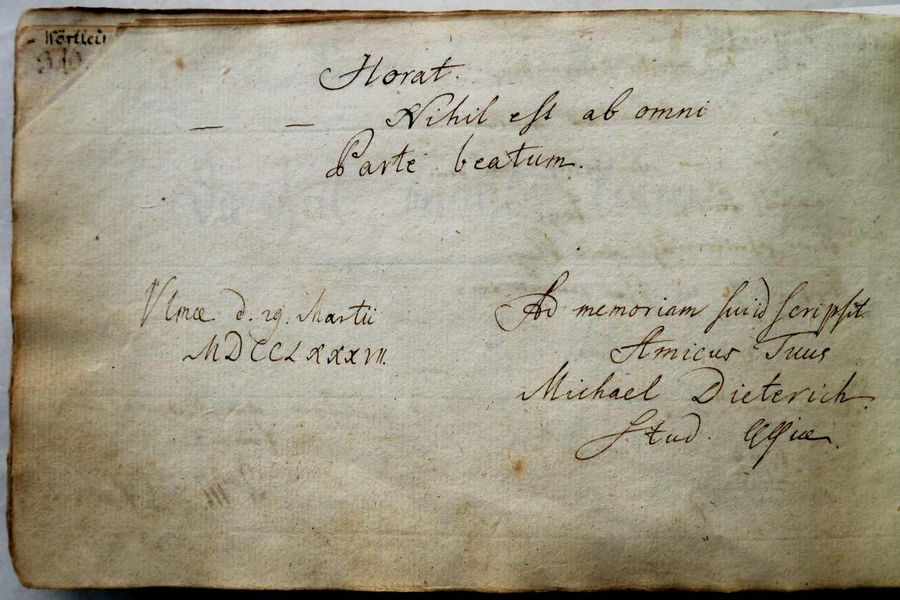 Wörtlen
Horat.
— — Nihil est ab omni
Parte beatum.
Ulmæ d. 29. Martii
MDCCLXXXVII.
Ad memoriam sui scripsit
Amicus Tuus
Michael Dieterich
Stud.